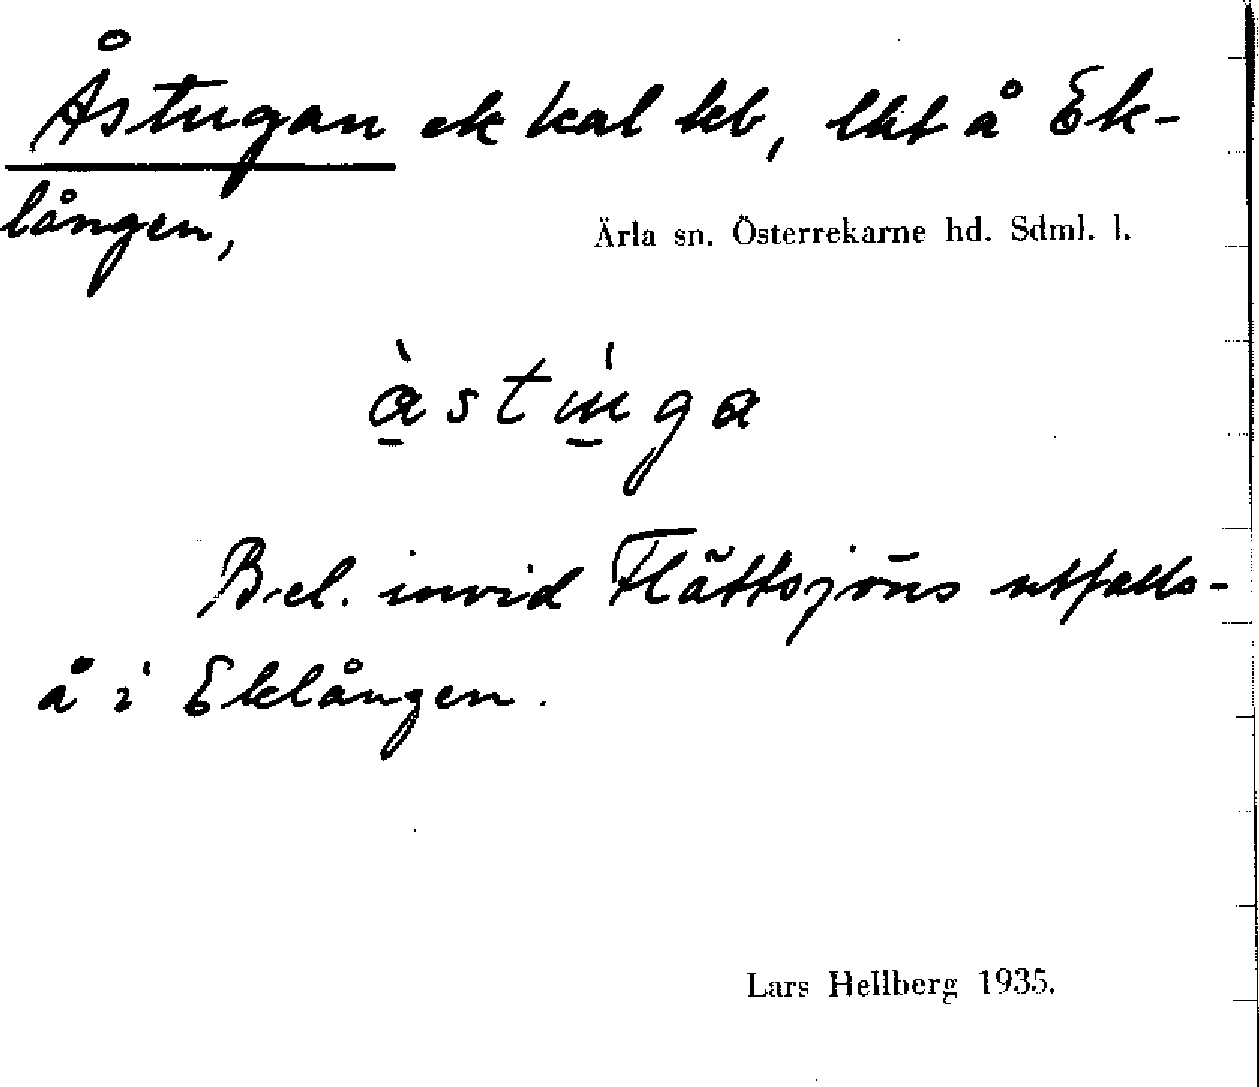 Åstugan ek kal kb, lht å Ek-
lången,
Ärla sn. Österrekarne hd. Sdml. l.
Bel. invid Flättsjöns utfalls-
å i Eklången.
Lars Hellberg 1935.